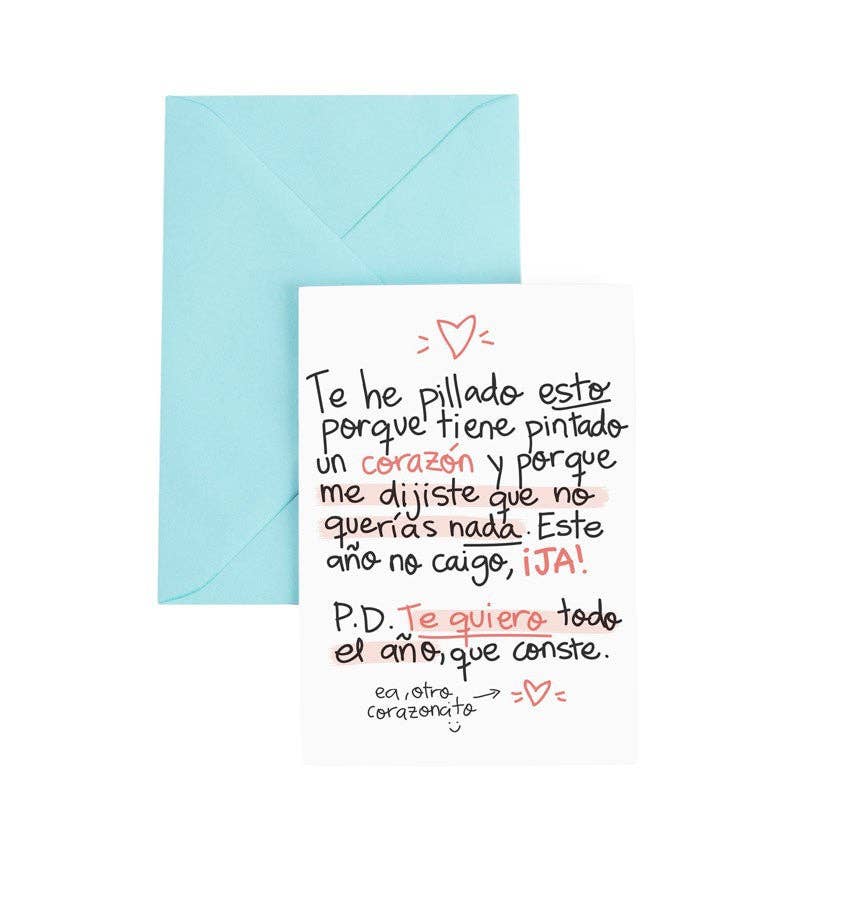 Te he pillado esto
porque tiene pintado
un corazón y porque
me dijiste que no
querías nada. Este
año no caigo, ¡JA!
P.D. Te quiero todo
el año, que conste.
ea, otro
corazoncito